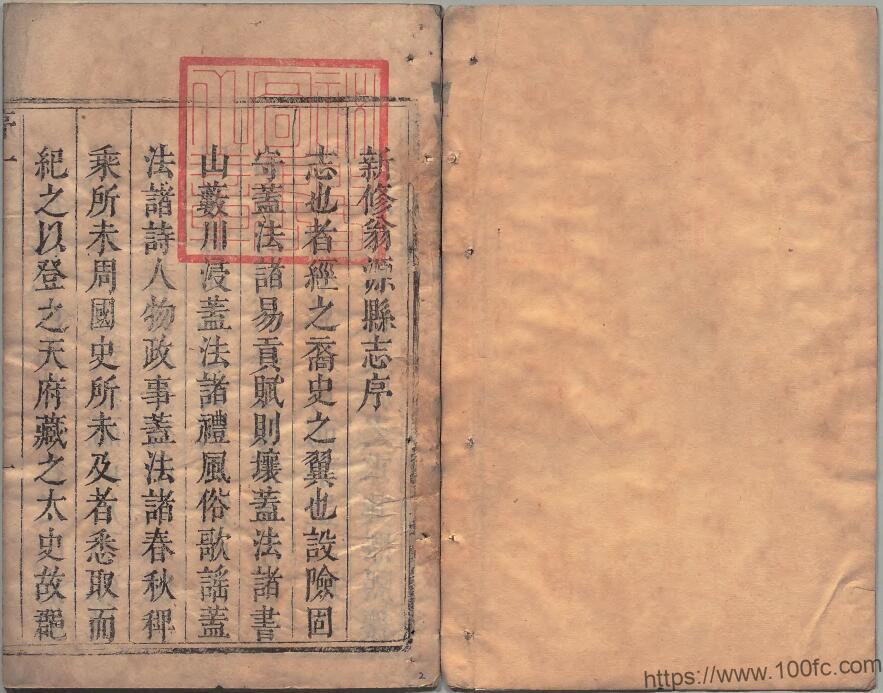 新修翁源縣志序
志也者經之裔史之翼也設險固
守蓋法諸易貢賦則壤蓋法諸書
山藪川浸蓋法諸禮風俗歌謡蓋
法諸詩人物政事蓋法諸春秋稗
乘所未周國史所未及者悉取而
紀之以登之天府藏之太史故
序一
2
https://www.100fc.com